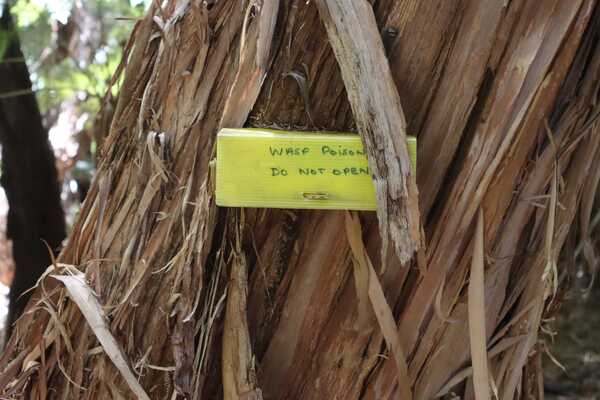 WASP POISON
DO NOT OPEN